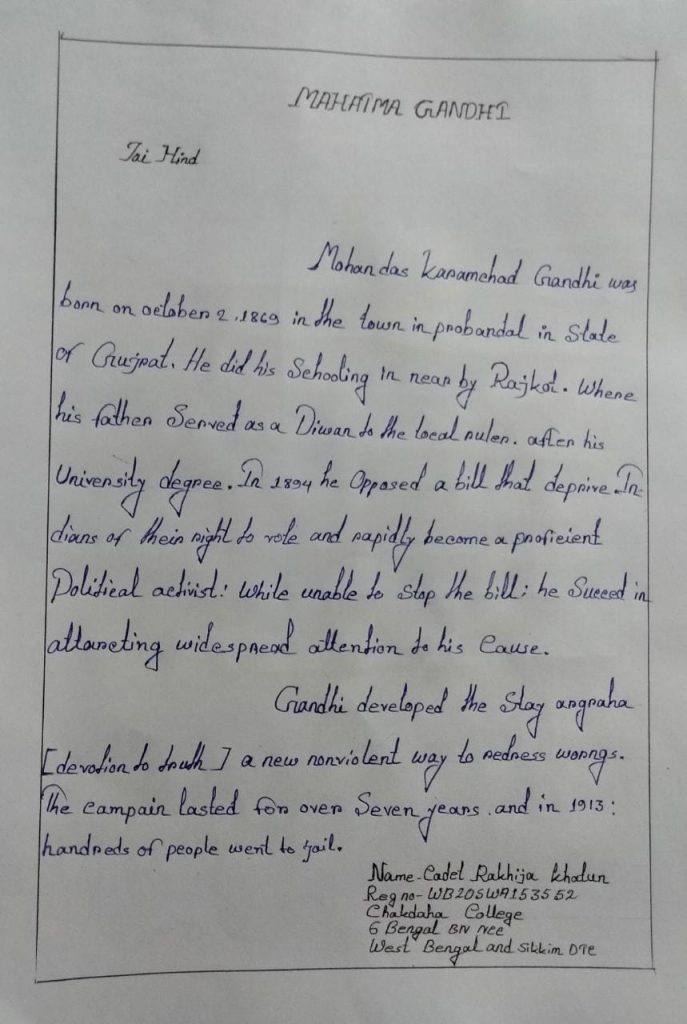 MAHATMA GANDHI
Jai Hind
Mohandas Karamchad Gandhi was
born on october 2, 1869 in the town in probandal in State
of Gujrat. He did his Schooling in near by Rajkot. Where
his father Served as a Diwan to the local ruler. after his
University degree. In 1894 he Opposed a bill that deprive In-
dians of their right to vote and rapidly become a proficient
Political activist: While unable to stop the bill; he Succed in
attarcting widespread attention to his Cause.
Gandhi developed the Stay angraha
[devotion to truth] a new nonviolent way to redress worngs.
The campain lasted for over Seven years. and in 1913:
handreds of people went to jail.
Name-Cadet Rakhija Khatun
Reg no- WB20SWA153552
Chakdaha College
6 Bengal BN NCC
West Bengal and Sikkim DTE